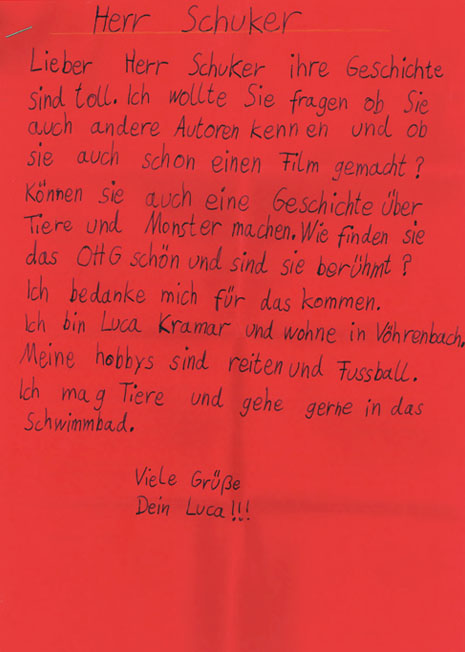 Herr Schuker
Lieber Herr Schuker ihre Geschichte
sind toll. Ich wollte Sie fragen ob Sie
auch andere Autoren kennen und ob
sie auch schon einen Film gemacht?
Können sie auch eine Geschichte über
Tiere und Monster machen. Wie finden sie
das OHG schön und sind sie berühmt?
Ich bedanke mich für das kommen.
Ich bin Luca Kramar und wohne in Vöhrenbach.
Meine hobbys sind reiten und Fussball.
Ich mag Tiere und gehe gerne in das
Schwimmbad.
Viele Grüße
Dein Luca!!!